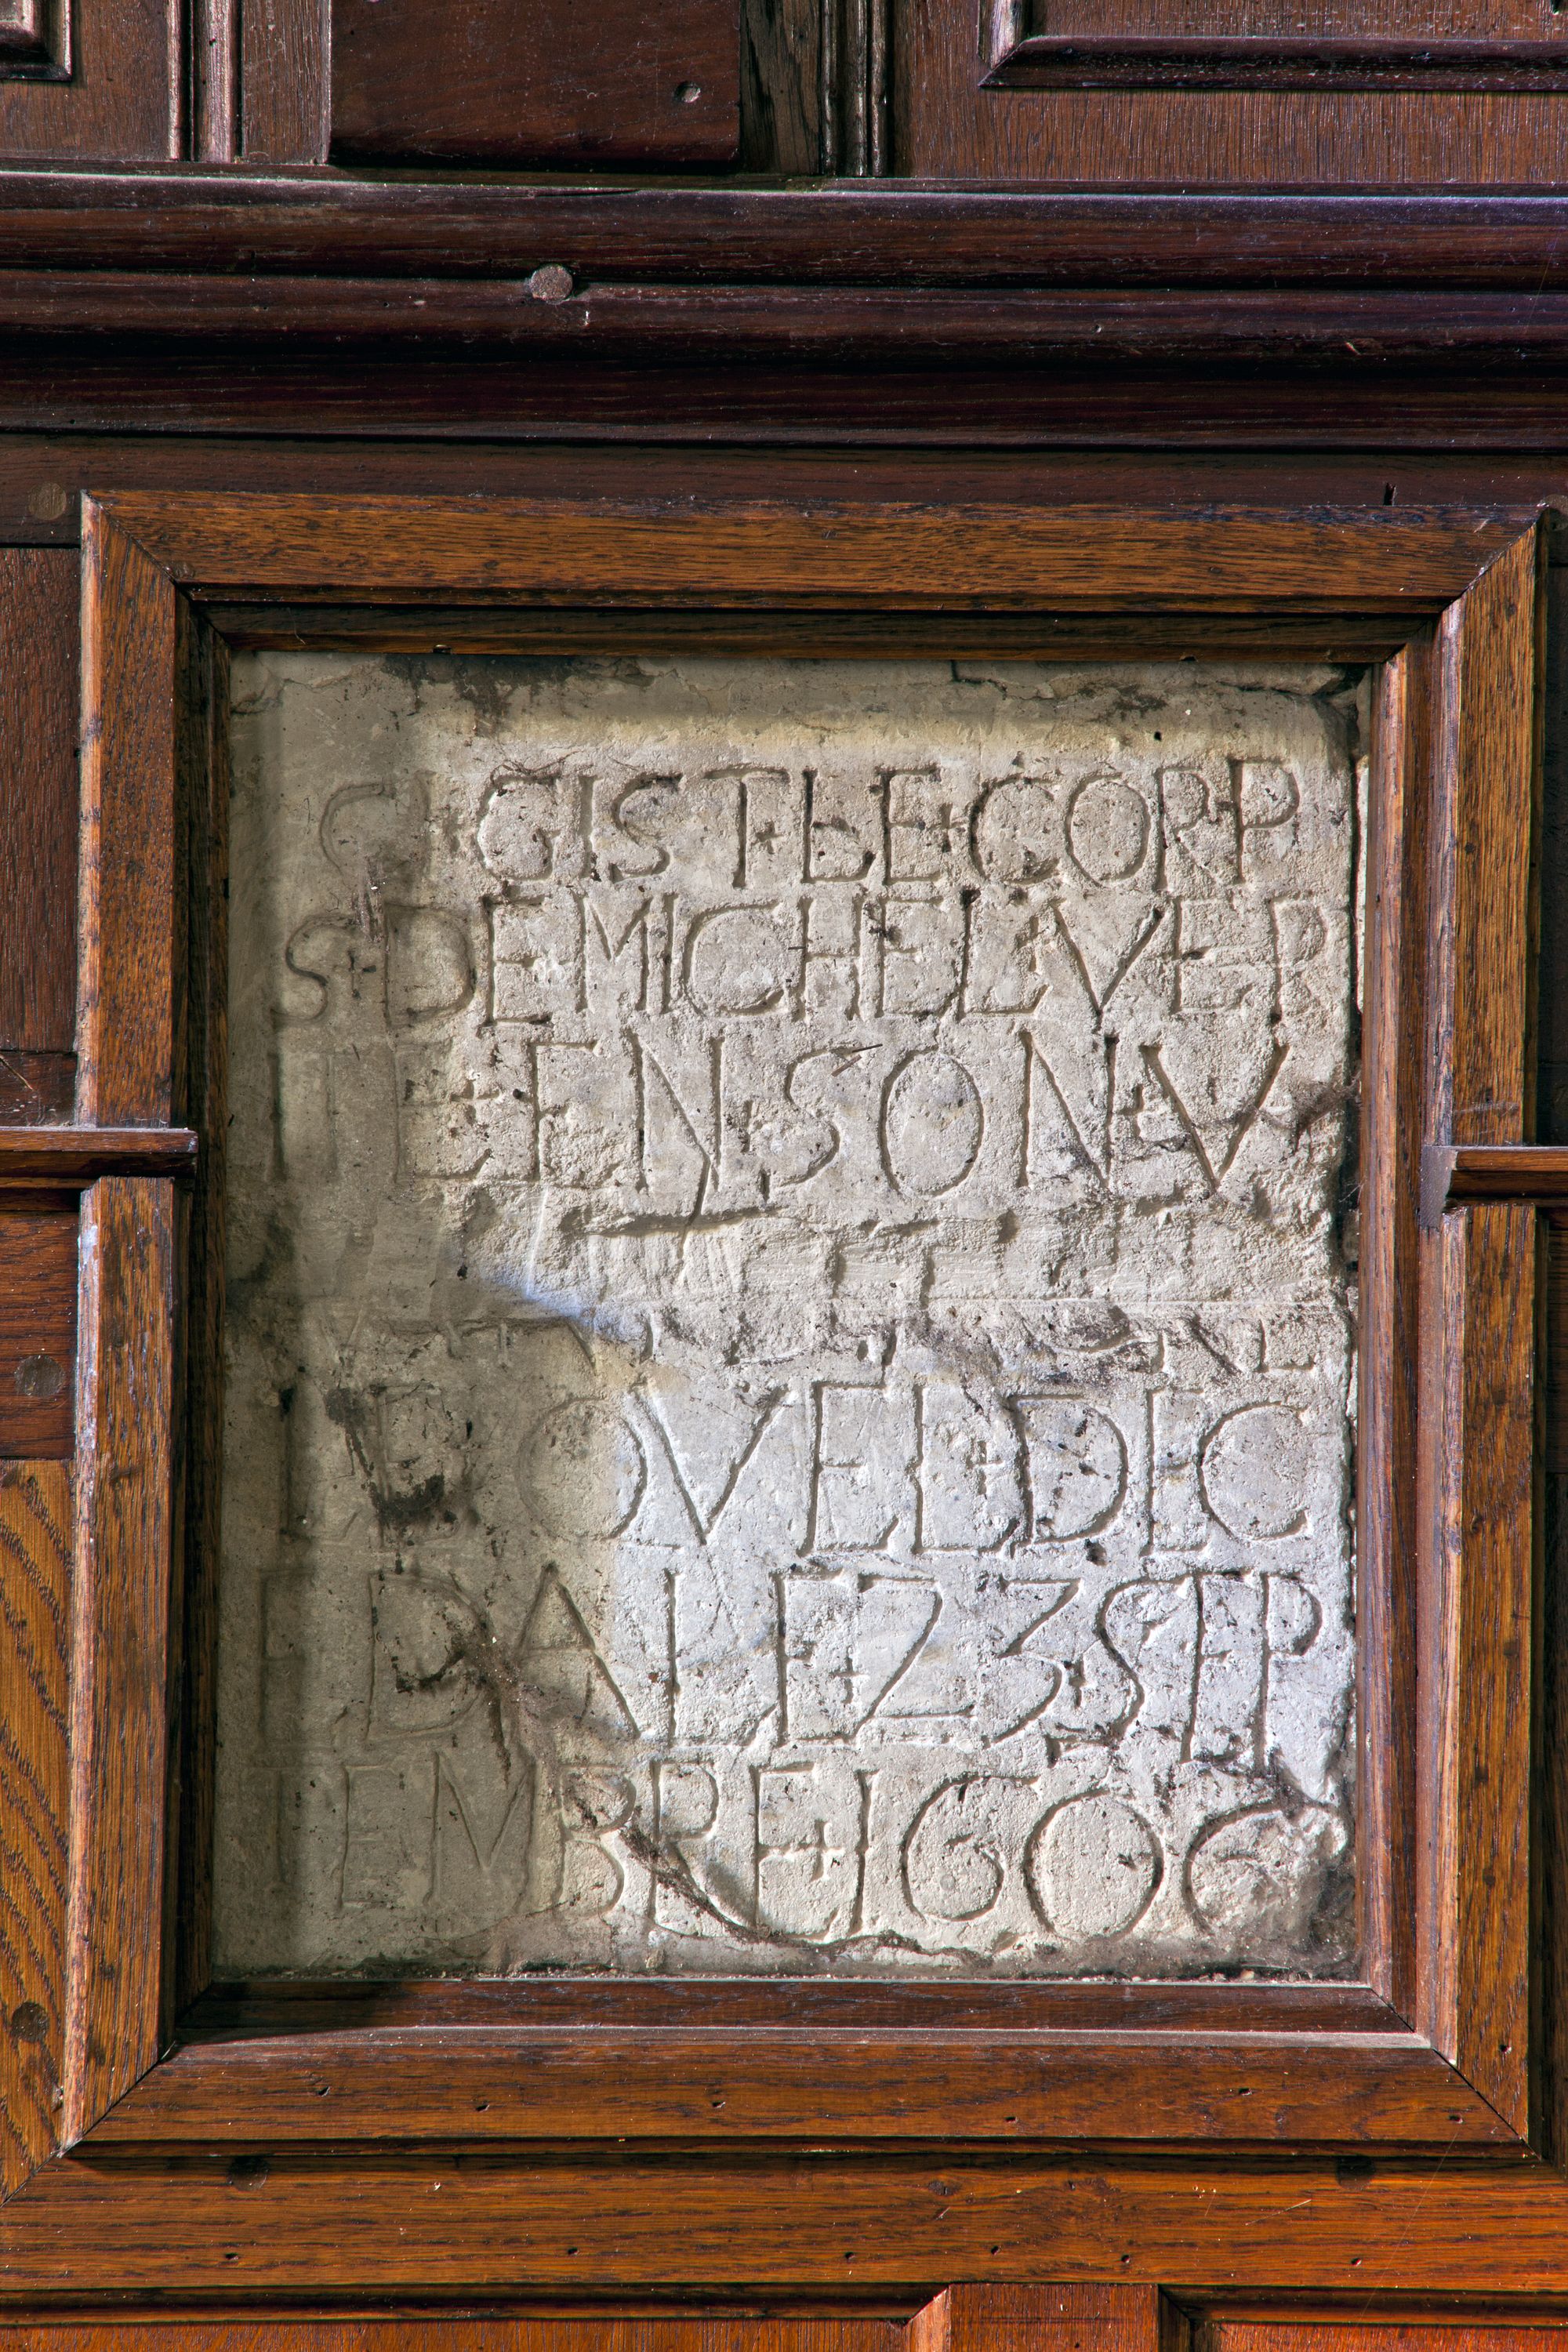 CI+GIST+LE+CORP
S+DE+MICHELAVER
ITE+EN+SON+V
LEQVEL+DEC
EDA LE+23+SEP
TEMBRE+1606